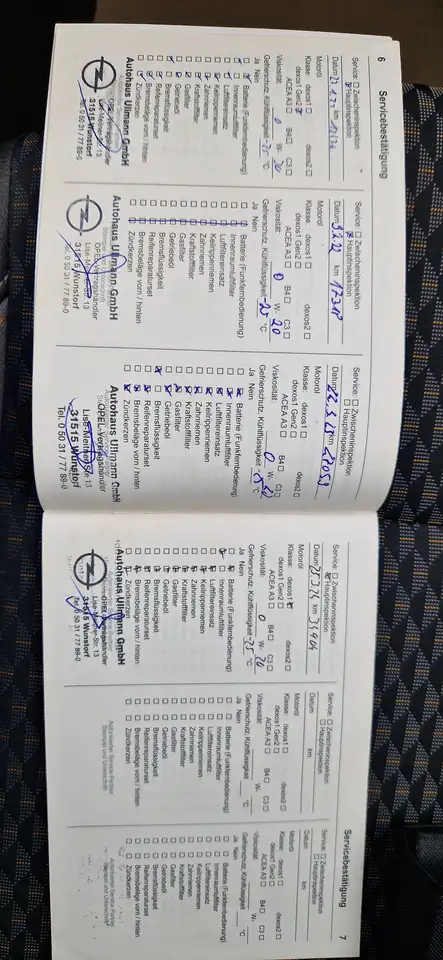 6
Servicebestätigung
Service: □ Zwischeninspektion
Hauptinspektion
Datum km
Motoröl
Klasse: dexos1 □ dexos2 □
dexos1 Gen2
ACEA A3 □ B4 □ C3 □
Viskosität: 0 W- 20
Gefrierschutz, Kühlflüssigkeit °C
Ja Nein
Batterie (Funkfernbedienung)
Innenraumfilter
Luftfiltereinsatz
Keilrippenriemen
Zahnriemen
Kraftstofffilter
Gasfilter
Getriebeöl
Bremsflüssigkeit
Reifenreparaturset
Bremsbeläge vorn / hinten
Zündkerzen
Autohaus Ullmann GmbH
OPEL-Vertragshändler
Lise-Meitner-Str. 13
31515 Wunstorf
Tel. 0 50 31 / 77 89-0
Service: □ Zwischeninspektion
Hauptinspektion
Datum 9.3.22 km
Motoröl
Klasse: dexos1 □ dexos2 □
dexos1 Gen2 □
ACEA A3 □ B4 □ C3 □
Viskosität: 0 W- 20
Gefrierschutz, Kühlflüssigkeit -25 °C
Ja Nein
Batterie (Funkfernbedienung)
Innenraumfilter
Luftfiltereinsatz
Keilrippenriemen
Zahnriemen
Kraftstofffilter
Gasfilter
Getriebeöl
Bremsflüssigkeit
Reifenreparaturset
Bremsbeläge vorn / hinten
Zündkerzen
Autohaus Ullmann GmbH
OPEL-Vertragshändler
Lise-Meitner-Str. 13
31515 Wunstorf
Tel. 0 50 31 / 77 89-0
Service: □ Zwischeninspektion
□ Hauptinspektion
Datum km
Motoröl
Klasse: dexos1 □ dexos2 □
dexos1 Gen2 □
ACEA A3 □ B4 □ C3 □
Viskosität: 0 W-
Gefrierschutz, Kühlflüssigkeit °C
Ja Nein
Batterie (Funkfernbedienung)
Innenraumfilter
Luftfiltereinsatz
Keilrippenriemen
Zahnriemen
Kraftstofffilter
Gasfilter
Getriebeöl
Bremsflüssigkeit
Reifenreparaturset
Bremsbeläge vorn / hinten
Zündkerzen
Autohaus Ullmann GmbH
OPEL-Vertragshändler
Lise-Meitner-Str. 13
31515 Wunstorf
Tel. 0 50 31 / 77 89-0
Servicebestätigung
7
Service: □ Zwischeninspektion
Hauptinspektion
Datum km 31904
Motoröl
Klasse: dexos1 dexos2 □
dexos1 Gen2 □
ACEA A3 □ B4 □ C3 □
Viskosität: 0 W- 20
Gefrierschutz, Kühlflüssigkeit -25 °C
Ja Nein
Batterie (Funkfernbedienung)
Innenraumfilter
Luftfiltereinsatz
Keilrippenriemen
Zahnriemen
Kraftstofffilter
Gasfilter
Getriebeöl
Bremsflüssigkeit
Reifenreparaturset
Bremsbeläge vorn / hinten
Zündkerzen
Autohaus Ullmann GmbH
OPEL-Vertragshändler
Lise-Meitner-Str. 13
31515 Wunstorf
Tel. 0 50 31 / 77 89-0
Service: □ Zwischeninspektion
□ Hauptinspektion
Datum km
Motoröl
Klasse: dexos1 □ dexos2 □
dexos1 Gen2 □
ACEA A3 □ B4 □ C3 □
Viskosität: W-
Gefrierschutz, Kühlflüssigkeit °C
Ja Nein
□ □ Batterie (Funkfernbedienung)
□ □ Innenraumfilter
□ □ Luftfiltereinsatz
□ □ Keilrippenriemen
□ □ Zahnriemen
□ □ Kraftstofffilter
□ □ Gasfilter
□ □ Getriebeöl
□ □ Bremsflüssigkeit
□ □ Reifenreparaturset
□ □ Bremsbeläge vorn / hinten
□ □ Zündkerzen
Autorisierter Service-Partner
Stempel und Unterschrift
Service: □ Zwischeninspektion
□ Hauptinspektion
Datum km
Motoröl
Klasse: dexos1 □ dexos2 □
dexos1 Gen2 □
ACEA A3 □ B4 □ C3 □
Viskosität: W-
Gefrierschutz, Kühlflüssigkeit °C
Ja Nein
□ □ Batterie (Funkfernbedienung)
□ □ Innenraumfilter
□ □ Luftfiltereinsatz
□ □ Keilrippenriemen
□ □ Zahnriemen
□ □ Kraftstofffilter
□ □ Gasfilter
□ □ Getriebeöl
□ □ Bremsflüssigkeit
□ □ Reifenreparaturset
□ □ Bremsbeläge vorn / hinten
□ □ Zündkerzen
Autorisierter Service-Partner
Stempel und Unterschrift